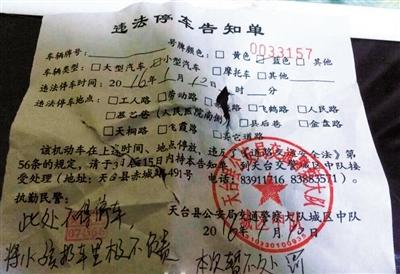 违法停车告知单
0033157
车辆牌号: 号牌颜色: □黄色 □蓝色 □其他
车辆类型: □大型汽车 □小型汽车 □摩托车 □其他
违法停车时间: 2016年1月12日 时 分
违法停车地点: □工人路 □劳动路 □飞鹤路 □人民路
(人民医院南侧) □县后巷 □金盘路
□天桐路 □飞霞路 □其它道路
该机动车在上述时间、地点停放, 违反《道路交通安全法》第
56条的规定, 请于3日后15日内持本告知单, 到天台交警城区中队接
受处理 (地址: 天台县赤城路491号 电话: 83911716 83883571)。
执勤民警:
此处不得停车,
天台县公安局交通警察大队城区中队
2016
将小孩扔车里极不负责
本次暂不处罚